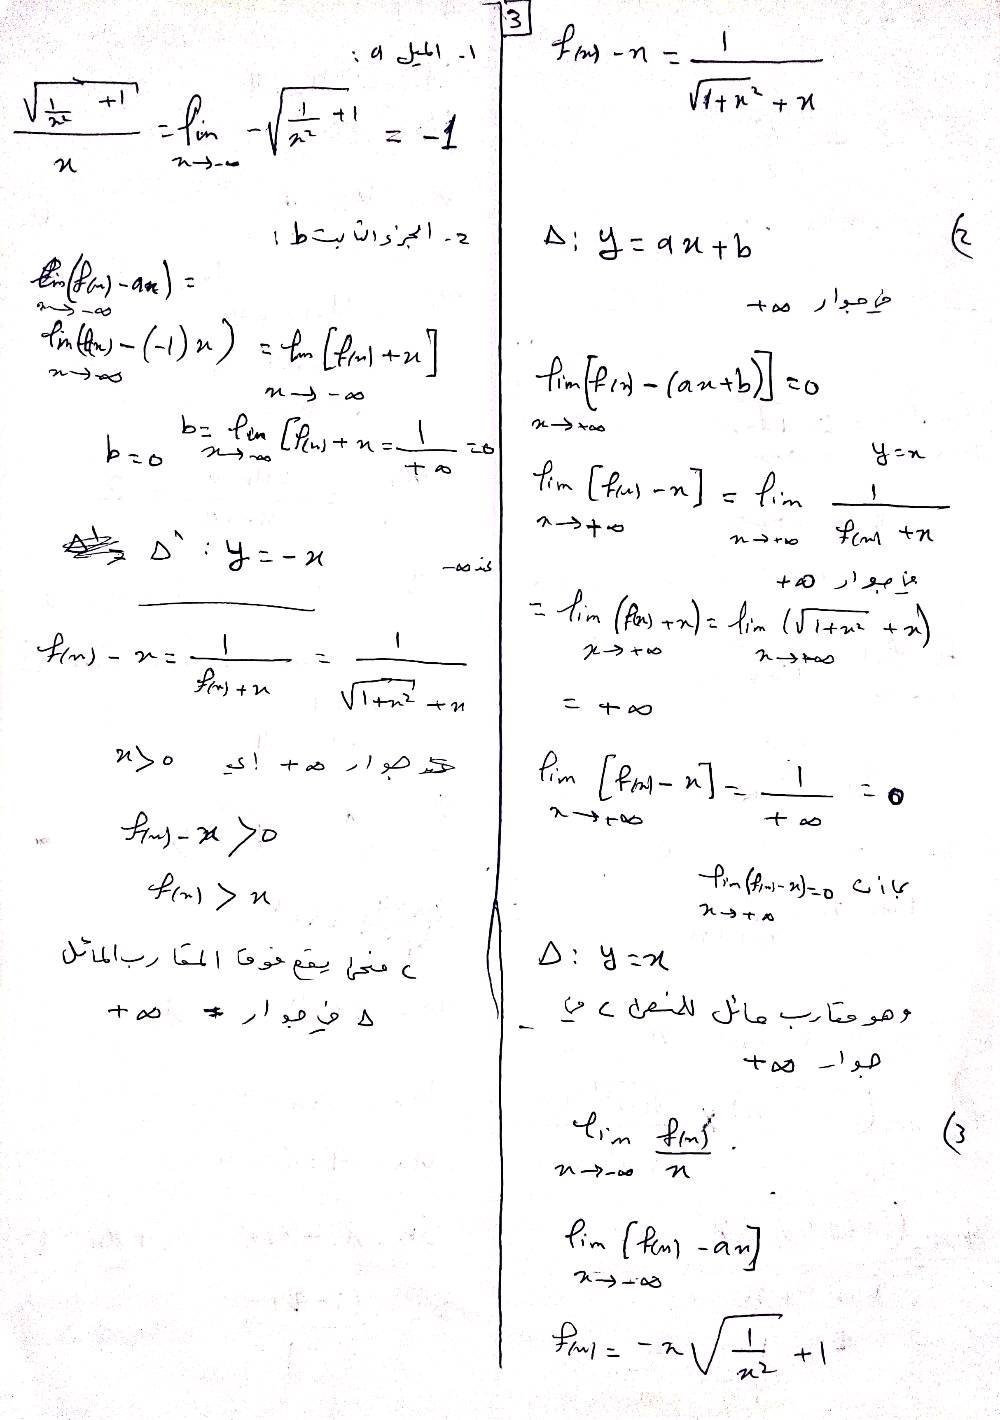 3
f(x) - x = 1 / (√(1+x²) + x)
2)
Δ : y = ax + b
في جوار +∞
lim [f(x) - (ax+b)] = 0
x→+∞
y = x
lim [f(x) - x] = lim 1 / (f(x) + x)
x→+∞ x→+∞
في جوار +∞
= lim (f(x) + x) = lim (√(1+x²) + x)
x→+∞ x→+∞
= + ∞
lim [f(x) - x] = 1 / +∞ = 0
x→+∞
بما أن lim (f(x) - x) = 0
x→+∞
Δ : y = x
وهو مقارب مائل للمنحنى c في
جوار +∞
3)
lim f(x) / x
x→-∞
lim [f(x) - ax]
x→-∞
f(x) = -x √(1/x² + 1)
1. الميل a :
√(1/x² + 1) / x = lim -√(1/x² + 1) = -1
x→-∞
2. الجزء الثابت b :
lim (f(x) - ax) =
x→-∞
lim (f(x) - (-1)x) = lim [f(x) + x]
x→-∞ x→-∞
b = 0 b = lim [f(x) + x = 1 / +∞ = 0
x→-∞
Δ` : y = -x عند -∞
f(x) - x = 1 / (f(x) + x) = 1 / (√(1+x²) + x)
عند جوار +∞ أي x > 0
f(x) - x > 0
f(x) > x
c منحنى يقع فوق المقارب المائل
Δ في جوار +∞